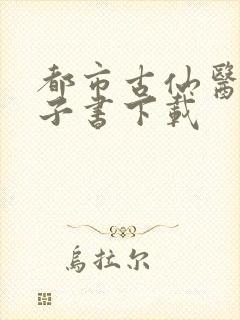 都市古仙醫
子書下載
烏拉尔